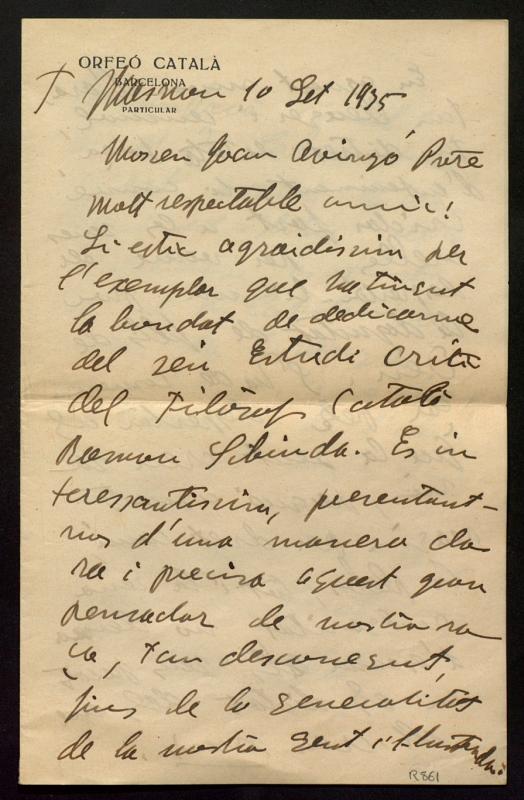 ORFEÓ CATALÀ
BARCELONA
PARTICULAR
Masnou 10 Set 1935
Mossen Joan Avinyó Pvre
Molt respectable amic!
Li estic agraidissim per
l'exemplar que ha tingut
la bondat de dedicarme
del seu Estudi critic
del Filosof Català
Ramon Sibiuda. Es in
teressantissim, presentant-
nos d'una manera cla
ra i precisa aquest gran
pensador de nostra ra
ça, tan desconegut,
fins de la generalitat
de la nostra gent
R861